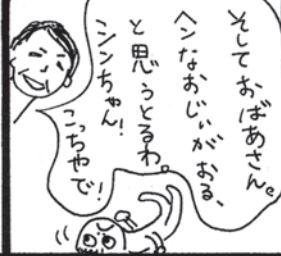 そしておばあさん。
ヘンなおじぃがおる、
と思うとるわ。
シンちゃん!
こっちやで!